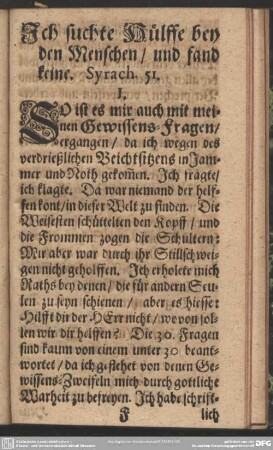 Ich suchte Hülffe bey
den Menschen / und fand
keine. Syrach. 51.
I.
SO ist es mir auch mit mei-
nen Gewissens-Fragen /
ergangen / da ich wegen des
verdrießlichen Beichtsitzens in Jam-
mer und Noth gekom̃en. Ich fragte /
ich klagte. Da war niemand der helf-
fen kont / in dieser Welt zu finden. Die
Weisesten schüttelten den Kopff / und
die Frommen zogen die Schultern:
Mir aber war durch ihr Stillschwei-
gen nicht geholffen. Ich erholete mich
Raths bey denen / die für andern Seu-
len zu seyn schienen / aber es hiesse:
Hilfft dir der HErr nicht / wovon sol-
len wir dir helffen? Die 30. Fragen
sind kaum von einem unter 30 beant-
wortet / da ich gestehet von denen Ge-
wissens-Zweifeln mich durch gottliche
Warheit zu befreyen. Ich habe schrift-
F lich
DFG